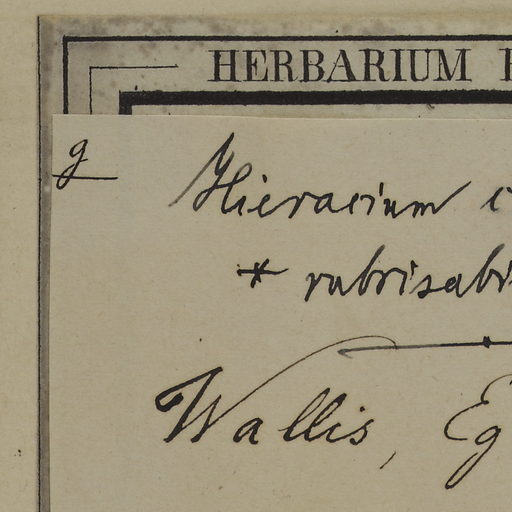 HERBARIUM
g
Hieracium c
* rubrisabi
Wallis, Eg